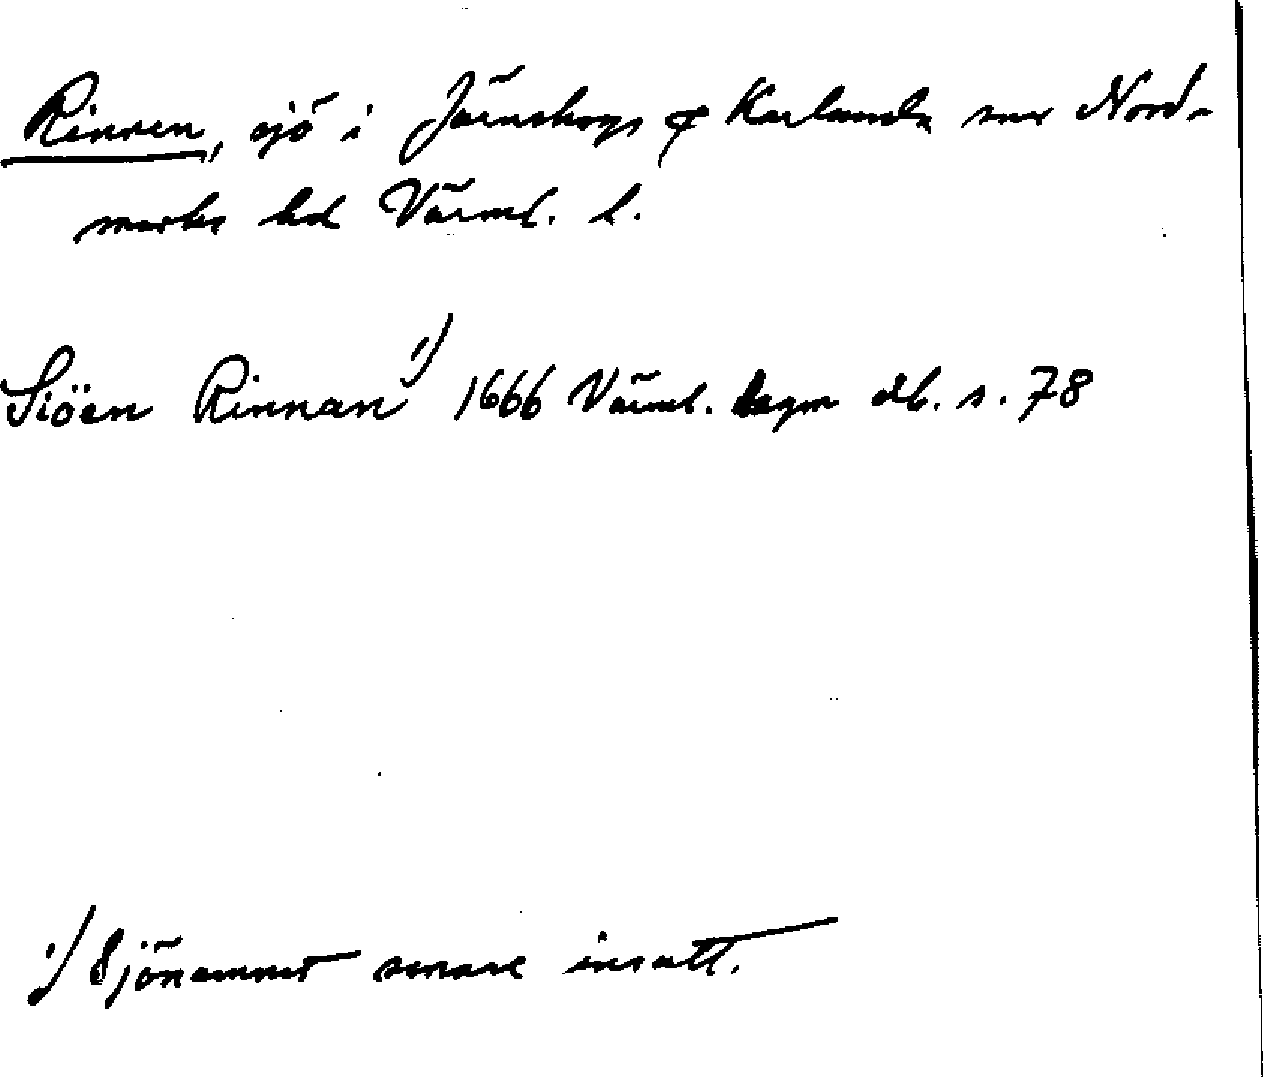 Rinnen, sjö i Järnskogs & Karlanda snr Nord-
marks hd Värml. l.
Siöen Rinnan 1) 1666 Värml. lagm db. s. 78
1) Sjönamnet senare insatt.